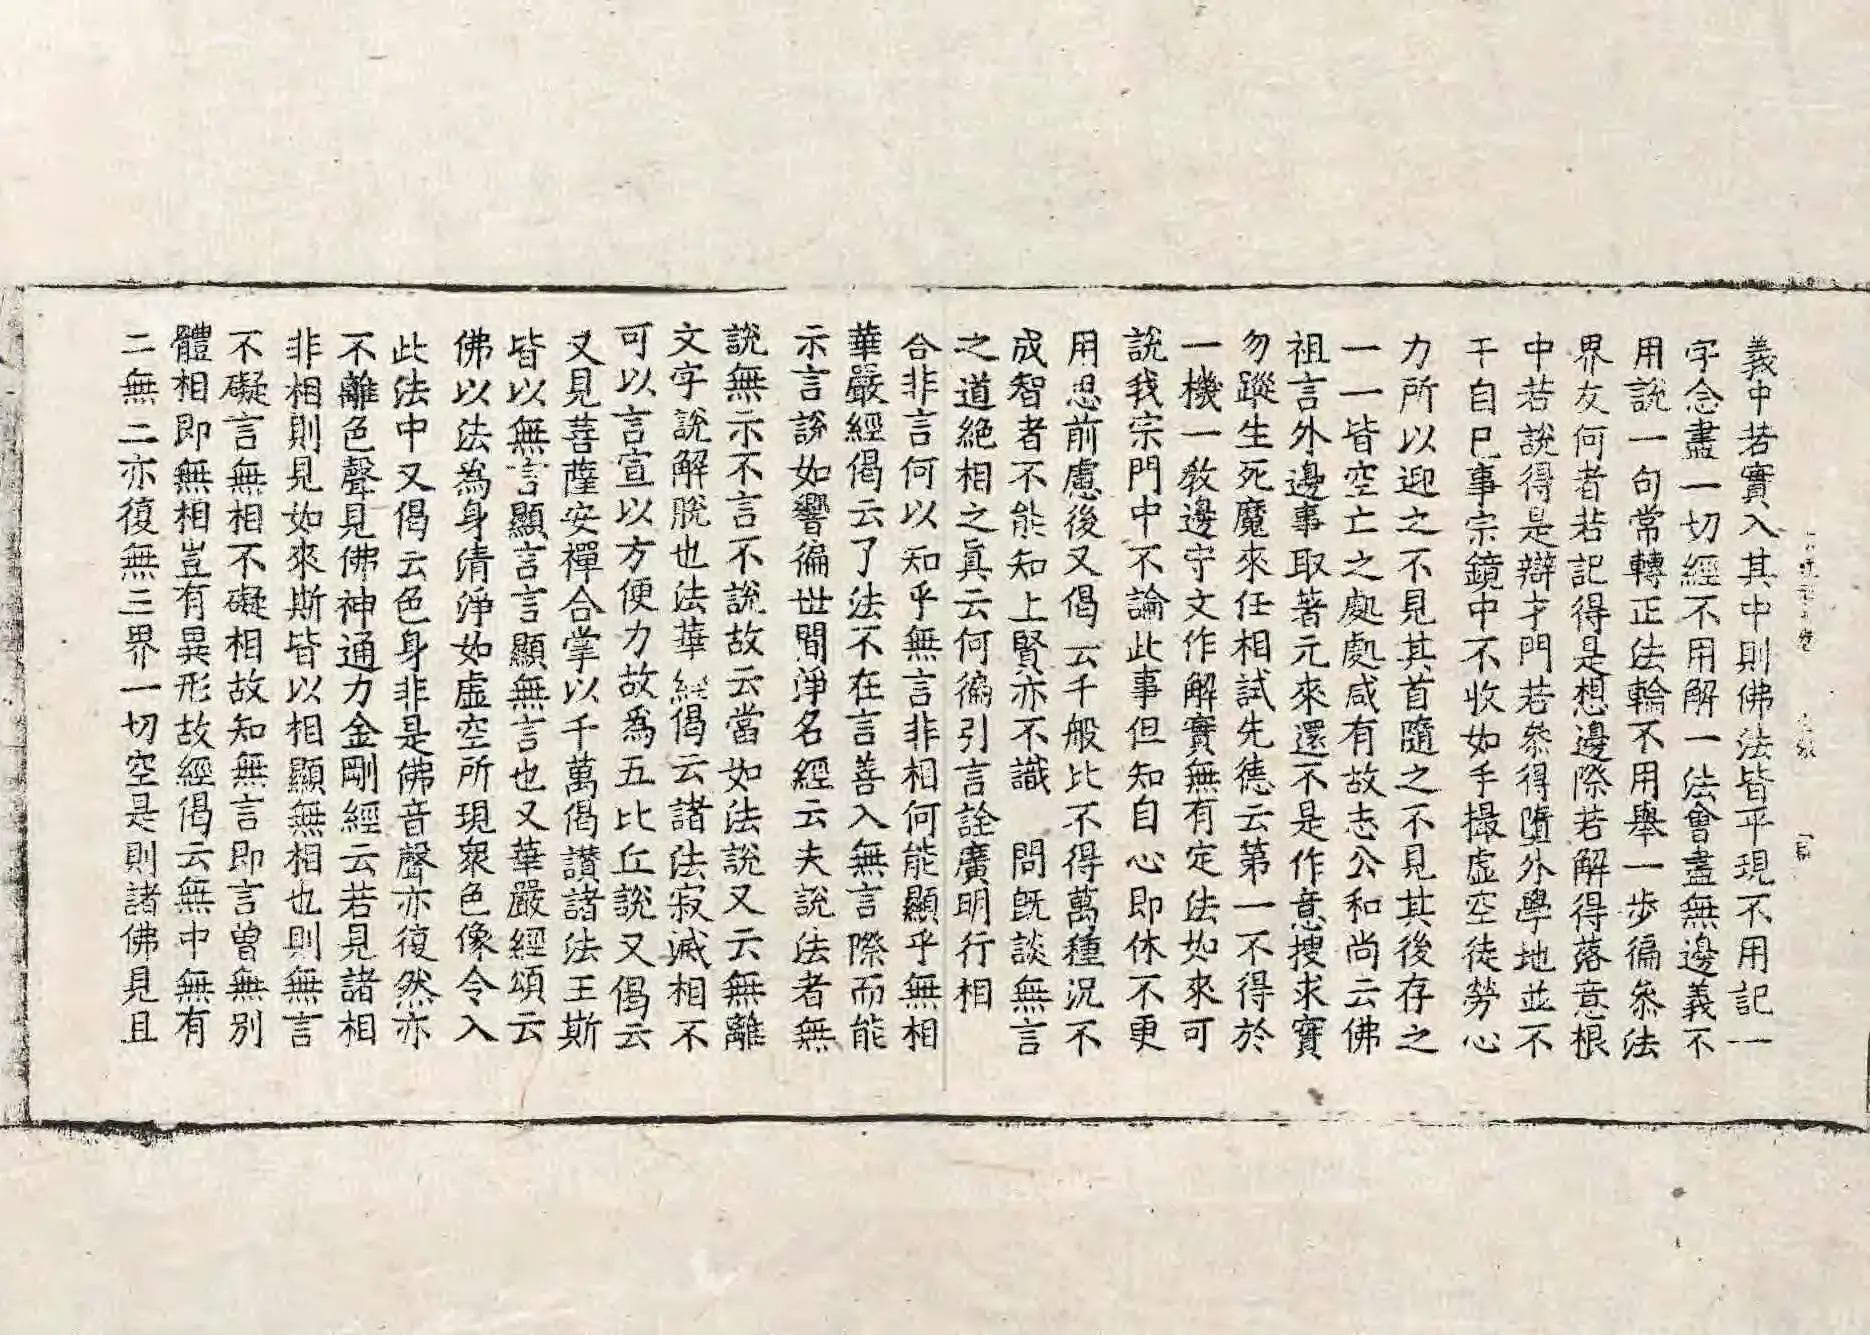 義中若實入其中則佛法皆平現不用記一
字念盡一切經不用解一法會盡無邊義不
用說一句常轉正法輪不用舉一步徧叅法
界友何者若記得是想邊際若解得落意根
中若說得是辯才門若叅得墮外學地並不
干自巳事宗鏡中不收如手撮虛空徒勞心
力所以迎之不見其首隨之不見其後存之
一一皆空亡之處處咸有故志公和尚云佛
祖言外邊事取著元來還不是作意搜求實
勿蹤生死魔來任相試先德云第一不得於
一機一敎邊守文作解實無有定法如來可
說我宗門中不論此事但知自心即休不更
用思前慮後又偈云千般比不得萬種況不
成智者不能知上賢亦不識 問旣談無言
之道絶相之眞云何徧引言詮廣明行相
合非言何以知乎無言非相何能顯乎無相
華嚴經偈云了法不在言善入無言際而能
示言說如響徧世間淨名經云夫說法者無
說無示不言不說故云當如法說又云無離
文字說解脫也法華經偈云諸法寂滅相不
可以言宣以方便力故爲五比丘說又偈云
又見菩薩安禪合掌以千萬偈讚諸法王斯
皆以無言顯言言顯無言也又華嚴經頌云
佛以法為身清淨如虛空所現衆色像令入
此法中又偈云色身非是佛音聲亦復然亦
不離色聲見佛神通力金剛經云若見諸相
非相則見如來斯皆以相顯無相也則無言
不礙言無相不礙相故知無言即言曾無別
體相即無相豈有異形故經偈云無中無有
二無二亦復無三界一切空是則諸佛見且